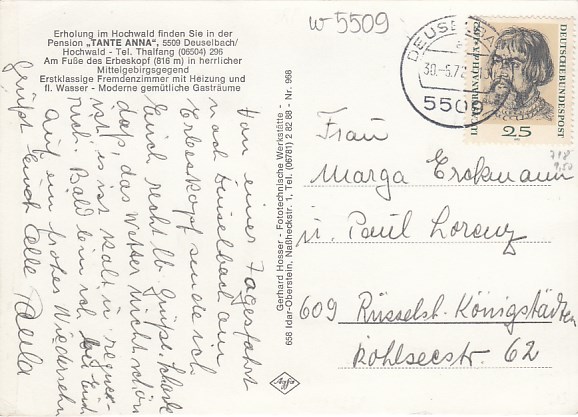 w 5509
Erholung im Hochwald finden Sie in der
Pension „TANTE ANNA", 5509 Deuselbach/
Hochwald - Tel. Thalfang (06504) 296
Am Fuße des Erbeskopf (816 m) in herrlicher
Mittelgebirgsgegend
Erstklassige Fremdenzimmer mit Heizung und
fl. Wasser - Moderne gemütliche Gasträume
Von einer Tagesfahrt
nach Deuselbach am
Erbeskopf sende ich
Euch recht lb. Grüße. Schade
daß das Wetter nicht schön
ist, es ist kalt u. regner-
risch. Bald bin ich bei Euch
Auf ein frohes Wiedersehn
grüßt Euch alle Paula
Gerhard Hosser - Fototechnische Werkstätte -
658 Idar-Oberstein, Naßheckstr. 1, Tel. (06781) 2 82 88 - Nr. 966
Agfa
DEUSELBACH
30.-5.72
5509
DEUTSCHE BUNDESPOST
LUCAS CRANACH
25
Frau
Marga Erckmann
u. Paul Lorenz
609 Rüsselsh.-Königstädten
Kohlseestr. 62